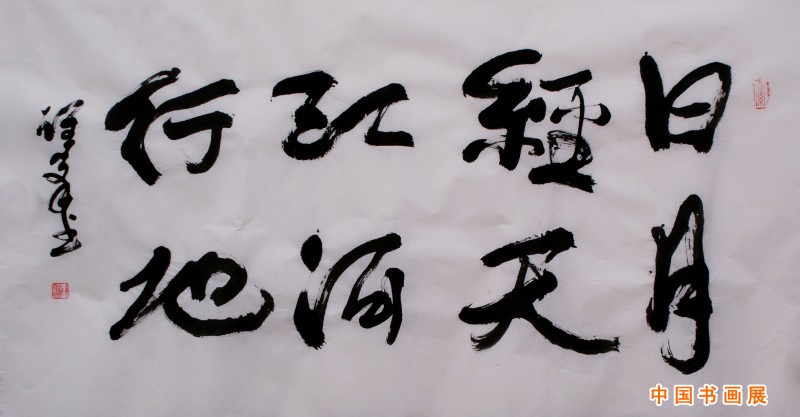 日月
經天
江河
行地
中国书画展